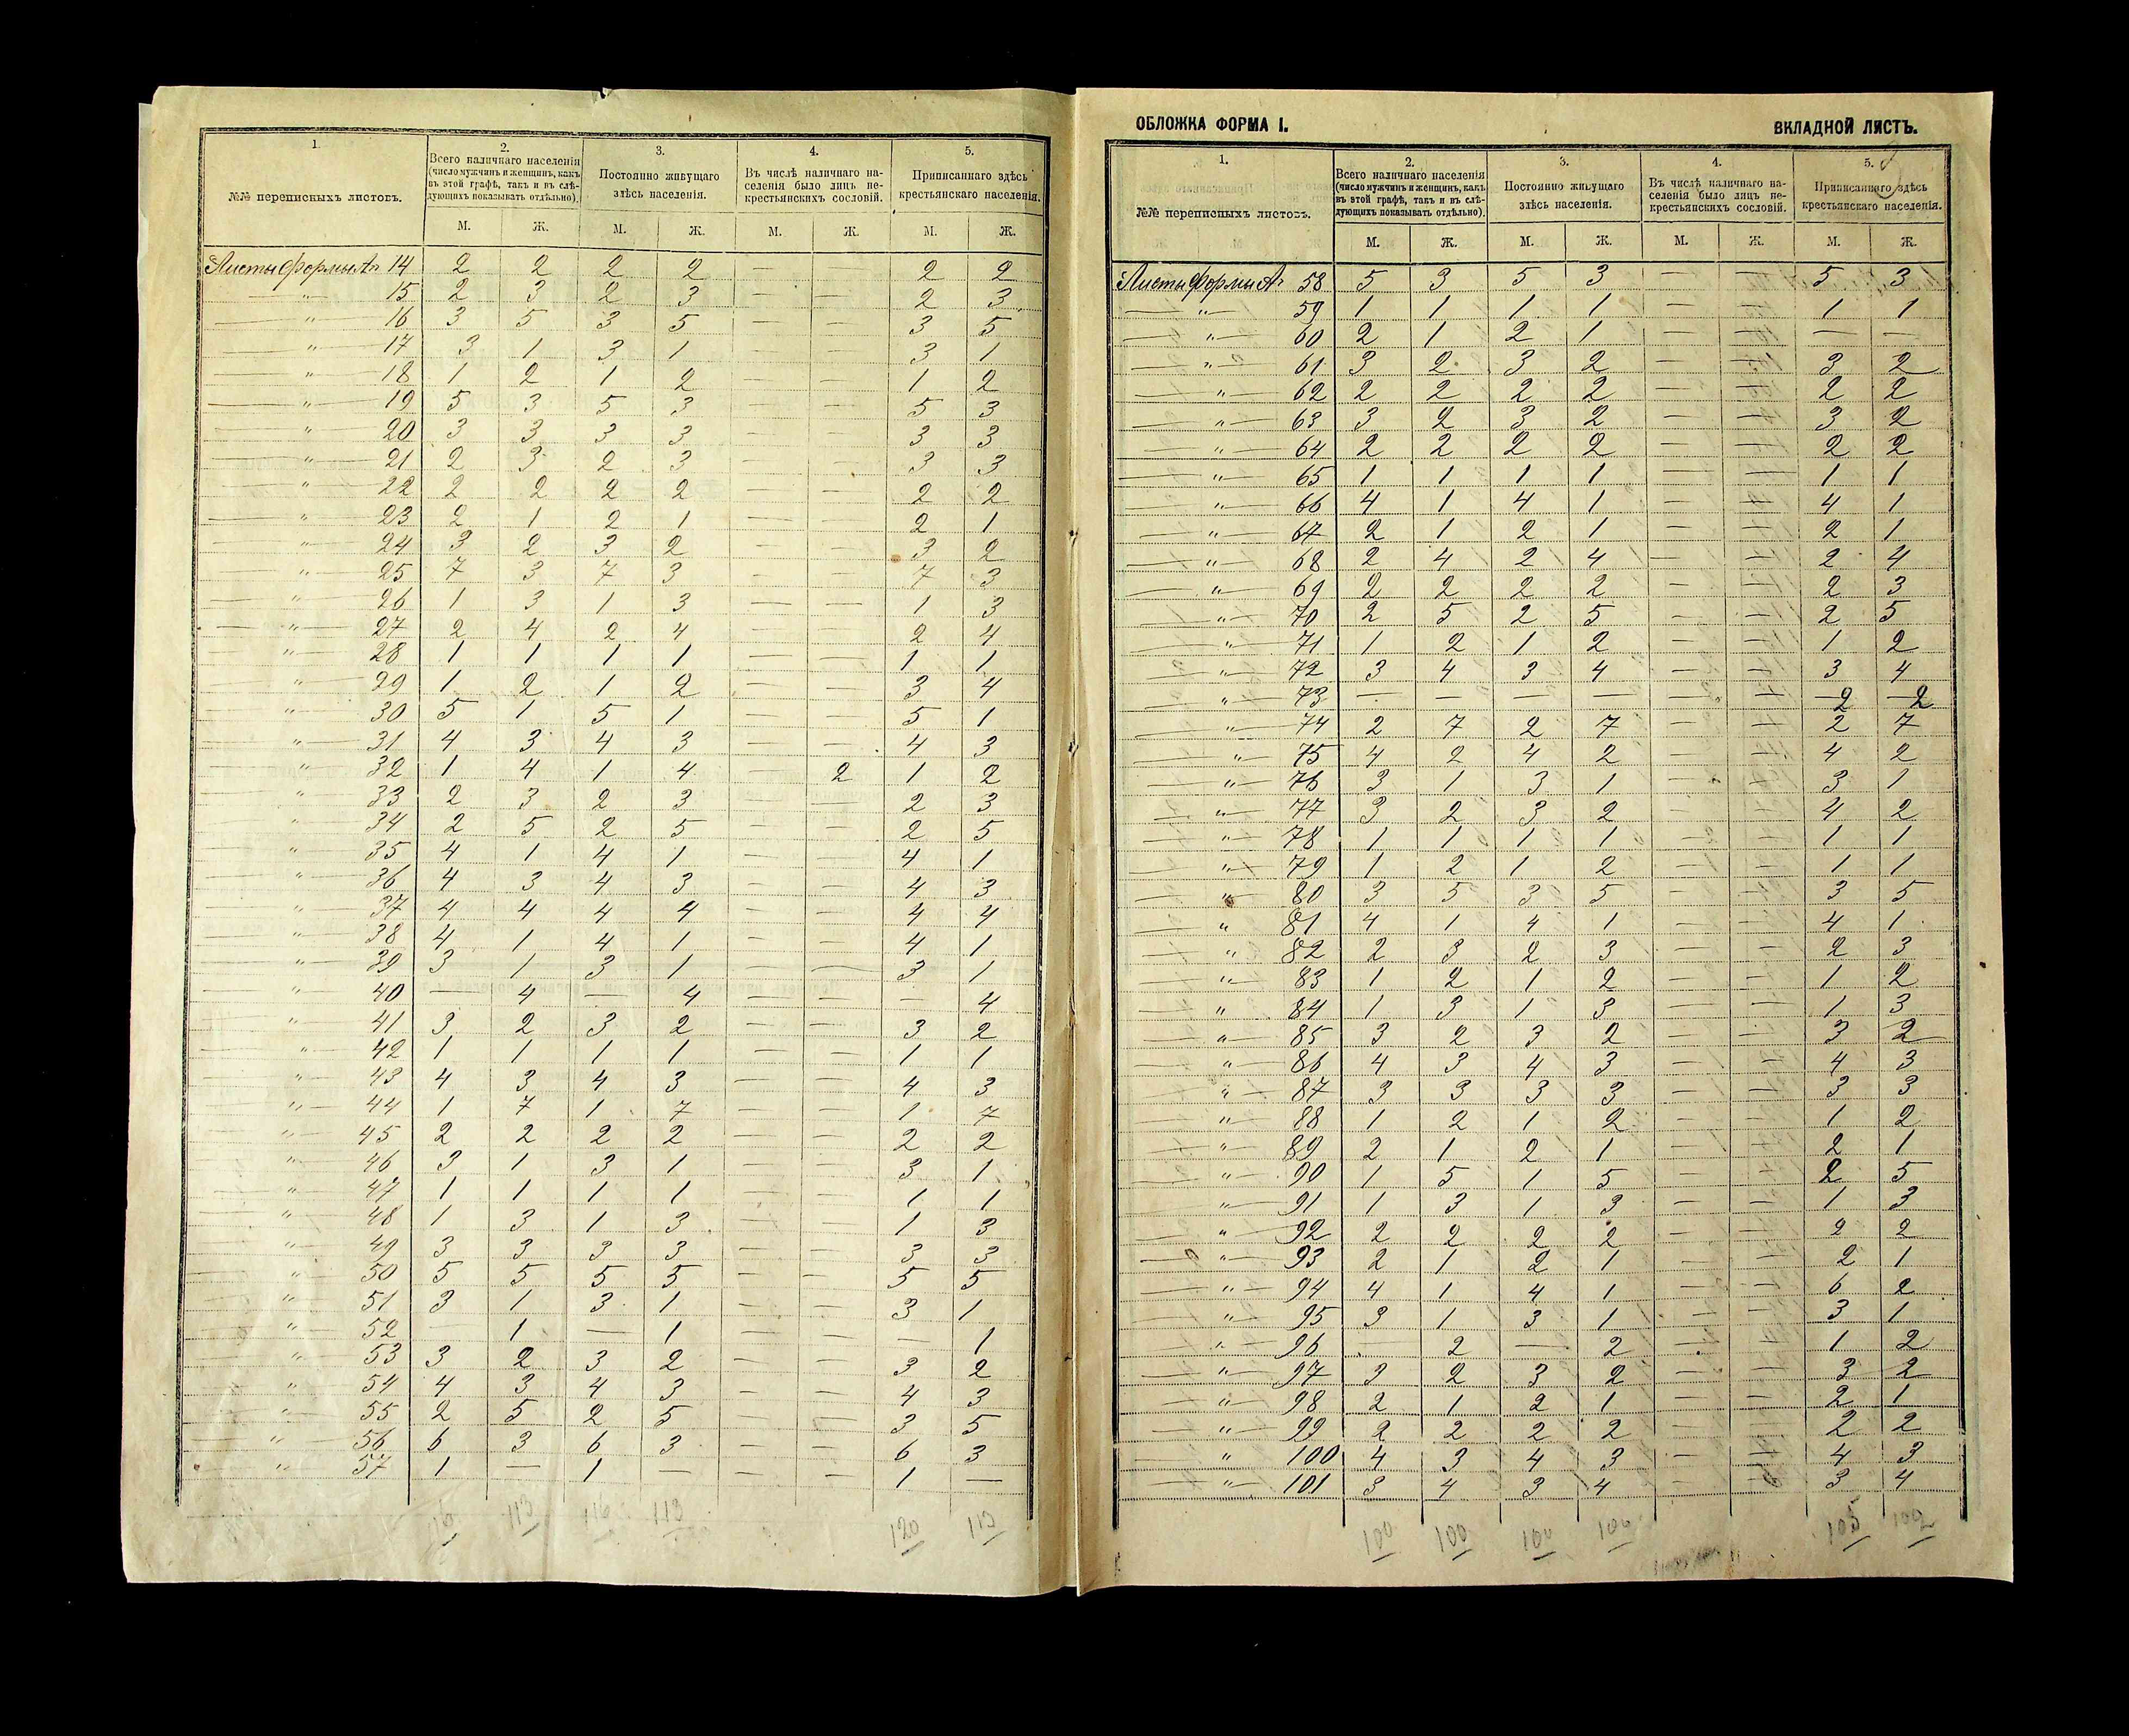 1.
2.
3.
4.
5.
№№ переписныхъ листовъ.
Всего наличнаго населенія
(число мужчинъ и женщинъ, какъ
въ этой графѣ, такъ и въ слѣ-
дующихъ показывать отдѣльно).
Постоянно живущаго
здѣсь населенія.
Въ числѣ наличнаго на-
селенія было лицъ не-
крестьянскихъ сословій.
Приписаннаго здѣсь
крестьянскаго населенія.
М. Ж. М. Ж. М. Ж. М. Ж.
Листы формы А. 14 2 2 2 2 — — 2 2
—"— 15 2 3 2 3 — — 2 3
—"— 16 3 5 3 5 — — 3 5
—"— 17 3 1 3 1 — — 3 1
—"— 18 1 2 1 2 — — 1 2
—"— 19 5 3 5 3 — — 5 3
—"— 20 3 3 3 3 — — 3 3
—"— 21 2 3 2 3 — — 3 3
—"— 22 2 2 2 2 — — 2 2
—"— 23 2 1 2 1 — — 2 1
—"— 24 3 2 3 2 — — 3 2
—"— 25 7 3 7 3 — — 7 3
—"— 26 1 3 1 3 — — 1 3
—"— 27 2 4 2 4 — — 2 4
—"— 28 1 1 1 1 — — 1 1
—"— 29 1 2 1 2 — — 3 4
—"— 30 5 1 5 1 — — 5 1
—"— 31 4 3 4 3 — — 4 3
—"— 32 1 4 1 4 — 2 1 2
—"— 33 2 3 2 3 — — 2 3
—"— 34 2 5 2 5 — — 2 5
—"— 35 4 1 4 1 — — 4 1
—"— 36 4 3 4 3 — — 4 3
—"— 37 4 4 4 4 — — 4 4
—"— 38 4 1 4 1 — — 4 1
—"— 39 3 1 3 1 — — 3 1
—"— 40 — 4 — 4 — — — 4
—"— 41 3 2 3 2 — — 3 2
—"— 42 1 1 1 1 — — 1 1
—"— 43 4 3 4 3 — — 4 3
—"— 44 1 7 1 7 — — 1 7
—"— 45 2 2 2 2 — — 2 2
—"— 46 3 1 3 1 — — 3 1
—"— 47 1 1 1 1 — — 1 1
—"— 48 1 3 1 3 — — 1 3
—"— 49 3 3 3 3 — — 3 3
—"— 50 5 5 5 5 — — 5 5
—"— 51 3 1 3 1 — — 3 1
—"— 52 — 1 — 1 — — — 1
—"— 53 3 2 3 2 — — 3 2
—"— 54 4 3 4 3 — — 4 3
—"— 55 2 5 2 5 — — 3 5
—"— 56 6 3 6 3 — — 6 3
—"— 57 1 — 1 — — — 1 —
116 113 116 113 120 113
ОБЛОЖКА ФОРМА I.
ВКЛАДНОЙ ЛИСТЪ.
1.
2.
3.
4.
5.
№№ переписныхъ листовъ.
Всего наличнаго населенія
(число мужчинъ и женщинъ, какъ
въ этой графѣ, такъ и въ слѣ-
дующихъ показывать отдѣльно).
Постоянно живущаго
здѣсь населенія.
Въ числѣ наличнаго на-
селенія было лицъ не-
крестьянскихъ сословій.
Приписаннаго здѣсь
крестьянскаго населенія.
М. Ж. М. Ж. М. Ж. М. Ж.
Листы формы А. 58 5 3 5 3 — — 5 3
—"— 59 1 1 1 1 — — 1 1
—"— 60 2 1 2 1 — — — —
—"— 61 3 2 3 2 — — 3 2
—"— 62 2 2 2 2 — — 2 2
—"— 63 3 2 3 2 — — 3 2
—"— 64 2 2 2 2 — — 2 2
—"— 65 1 1 1 1 — — 1 1
—"— 66 4 1 4 1 — — 4 1
—"— 67 2 1 2 1 — — 2 1
—"— 68 2 4 2 4 — — 2 4
—"— 69 2 2 2 2 — — 2 3
—"— 70 2 5 2 5 — — 2 5
—"— 71 1 2 1 2 — — 1 2
—"— 72 3 4 3 4 — — 3 4
—"— 73 — — — — — — 2 2
—"— 74 2 7 2 7 — — 2 7
—"— 75 4 2 4 2 — — 4 2
—"— 76 3 1 3 1 — — 3 1
—"— 77 3 2 3 2 — — 4 2
—"— 78 1 1 1 1 — — 1 1
—"— 79 1 2 1 2 — — 1 1
—"— 80 3 5 3 5 — — 3 5
" 81 4 1 4 1 — — 4 1
" 82 2 3 2 3 — — 2 3
—"— 83 1 2 1 2 — — 1 2
—"— 84 1 3 1 3 — — 1 3
—"— 85 3 2 3 2 — — 3 2
—"— 86 4 3 4 3 — — 4 3
—"— 87 3 3 3 3 — — 3 3
—"— 88 1 2 1 2 — — 1 2
—"— 89 2 1 2 1 — — 2 1
—"— 90 1 5 1 5 — — 2 5
—"— 91 1 3 1 3 — — 1 3
—"— 92 2 2 2 2 — — 2 2
—"— 93 2 1 2 1 — — 2 1
—"— 94 4 1 4 1 — — 6 2
—"— 95 3 1 3 1 — — 3 1
—"— 96 — 2 — 2 — — 1 2
—"— 97 3 2 3 2 — — 3 2
—"— 98 2 1 2 1 — — 2 1
—"— 99 2 2 2 2 — — 2 2
—"— 100 4 3 4 3 — — 4 3
—"— 101 3 4 3 4 — — 3 4
100 100 100 100 105 102